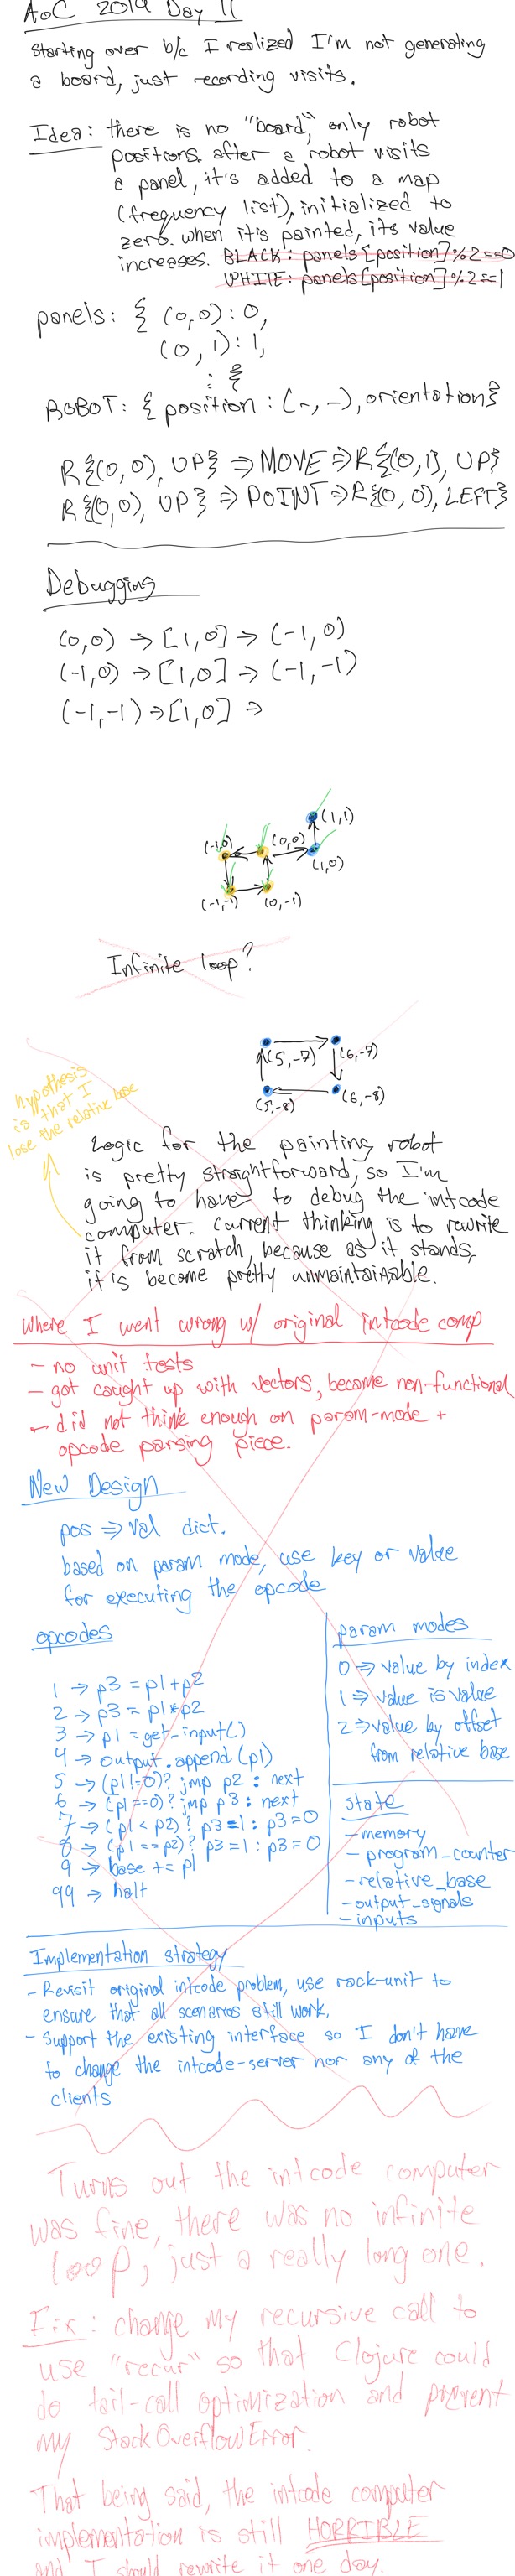 AoC 2019 Day 11
Starting over b/c I realized I'm not generating
a board, just recording visits.
Idea: there is no "board," only robot
positions. after a robot visits
a panel, it's added to a map
(frequency list), initialized to
zero. when it's painted, its value
increases. BLACK: panels[position]%2==0
WHITE: panels[position]%2==1
panels: { (0,0): 0,
(0,1): 1,
⋮ }
ROBOT: { position: (-,-), orientation}
R{(0,0), UP} ⇒ MOVE ⇒ R{(0,1), UP}
R{(0,0), UP} ⇒ POINT ⇒ R{(0,0), LEFT}
Debugging
(0,0) → [1,0] → (-1,0)
(-1,0) → [1,0] → (-1,-1)
(-1,-1) → [1,0] ⇒
(1,1)
(-1,0) (0,0)
(1,0)
(-1,-1) (0,-1)
Infinite loop?
(5,-7) (6,-7)
(5,-8) (6,-8)
hypothesis
is that I
lose the relative base
Logic for the painting robot
is pretty straightforward, so I'm
going to have to debug the intcode
computer. Current thinking is to rewrite
it from scratch, because as it stands,
it's become pretty unmaintainable.
Where I went wrong w/ original intcode comp
- no unit tests
- got caught up with vectors, became non-functional
- did not think enough on param-mode +
opcode parsing piece.
New Design
pos ⇒ val dict.
based on param mode, use key or value
for executing the opcode
opcodes
1 → p3 = p1+p2
2 → p3 = p1*p2
3 → p1 = get-input()
4 → output.append(p1)
5 → (p1!=0)? jmp p2 : next
6 → (p1==0)? jmp p3 : next
7 → (p1 < p2)? p3=1 : p3=0
8 → (p1 == p2)? p3=1 : p3=0
9 → base += p1
99 → halt
param modes
0 ⇒ value by index
1 ⇒ value is value
2 ⇒ value by offset
from relative base
state
- memory
- program_counter
- relative_base
- output_signals
- inputs
Implementation strategy
- Revisit original intcode problem, use rack-unit to
ensure that all scenarios still work.
- Support the existing interface so I don't have
to change the intcode-server nor any of the
clients
Turns out the intcode computer
was fine, there was no infinite
loop, just a really long one.
Fix: change my recursive call to
use "recur" so that Clojure could
do tail-call optimization and prevent
my StackOverflowError.
That being said, the intcode computer
implementation is still HORRIBLE
and I should rewrite it one day.